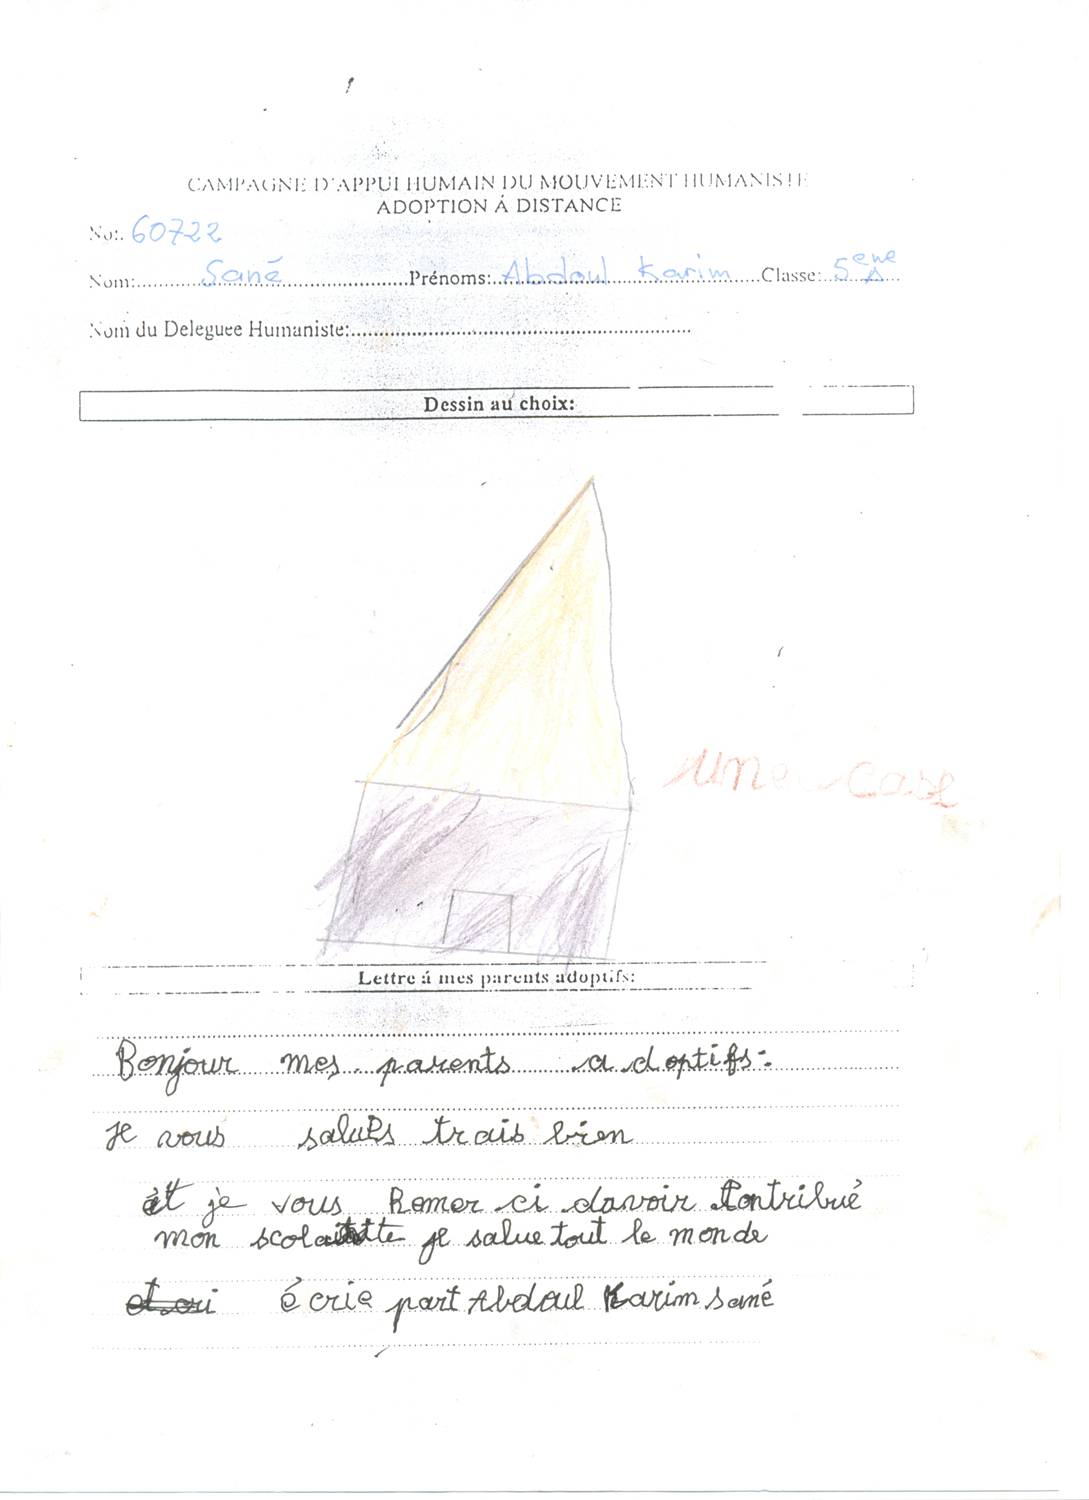 CAMPAGNE D'APPUI HUMAIN DU MOUVEMENT HUMANISTE
ADOPTION Á DISTANCE
No:. 60722
Nom:..........Sané..........Prénoms:..Abdoul Karim....Classe:..5eme A...
Nom du Deleguee Humaniste:..........
Dessin au choix:
une case
Lettre á mes parents adoptifs:
Bonjour mes parents adoptifs:
je vous salues trais bien
et je vous Remerci davoir Contribué
mon je salue tout le monde
écrie part Abdoul Karim sané